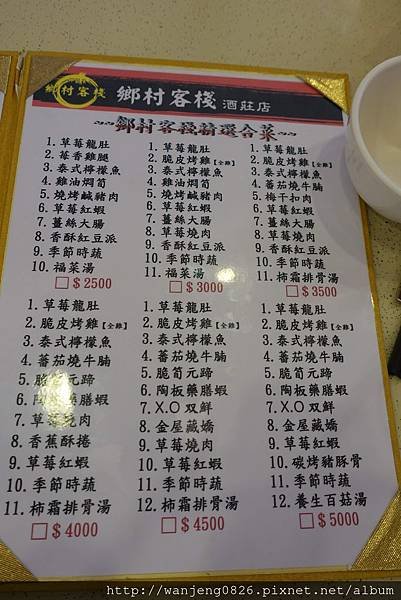 鄉村客棧
鄉村客棧 酒莊店
~~鄉村客棧精選合菜~~
1. 草莓龍肚
2. 茗香雞腿
3. 泰式檸檬魚
4. 雞油燜筍
5. 燒烤鹹豬肉
6. 草莓紅蝦
7. 薑絲大腸
8. 香酥紅豆派
9. 季節時蔬
10. 福菜湯
□$2500
1. 草莓龍肚
2. 脆皮烤雞【全雞】
3. 泰式檸檬魚
4. 雞油燜筍
5. 燒烤鹹豬肉
6. 草莓紅蝦
7. 薑絲大腸
8. 草莓燒肉
9. 香酥紅豆派
10. 季節時蔬
11. 福菜湯
□$3000
1. 草莓龍肚
2. 脆皮烤雞【全雞】
3. 泰式檸檬魚
4. 蕃茄燒牛腩
5. 梅干扣肉
6. 草莓紅蝦
7. 薑絲大腸
8. 草莓燒肉
9. 香酥紅豆派
10. 季節時蔬
11. 柿霜排骨湯
□$3500
1. 草莓龍肚
2. 脆皮烤雞【全雞】
3. 泰式檸檬魚
4. 蕃茄燒牛腩
5. 脆筍元蹄
6. 陶板藥膳蝦
7. 草莓燒肉
8. 香蕉酥捲
9. 草莓紅蝦
10. 季節時蔬
11. 柿霜排骨湯
□$4000
1. 草莓龍肚
2. 脆皮烤雞【全雞】
3. 泰式檸檬魚
4. 蕃茄燒牛腩
5. 脆筍元蹄
6. 陶板藥膳蝦
7. X.O雙鮮
8. 金屋藏嬌
9. 草莓燒肉
10. 草莓紅蝦
11. 季節時蔬
12. 柿霜排骨湯
□$4500
1. 草莓龍肚
2. 脆皮烤雞【全雞】
3. 泰式檸檬魚
4. 蕃茄燒牛腩
5. 脆筍元蹄
6. 陶板藥膳蝦
7. X.O雙鮮
8. 金屋藏嬌
9. 草莓紅蝦
10. 碳烤豬豚骨
11. 季節時蔬
12. 養生百菇湯
□$5000
http://wanjeng0826.pixnet.net/album